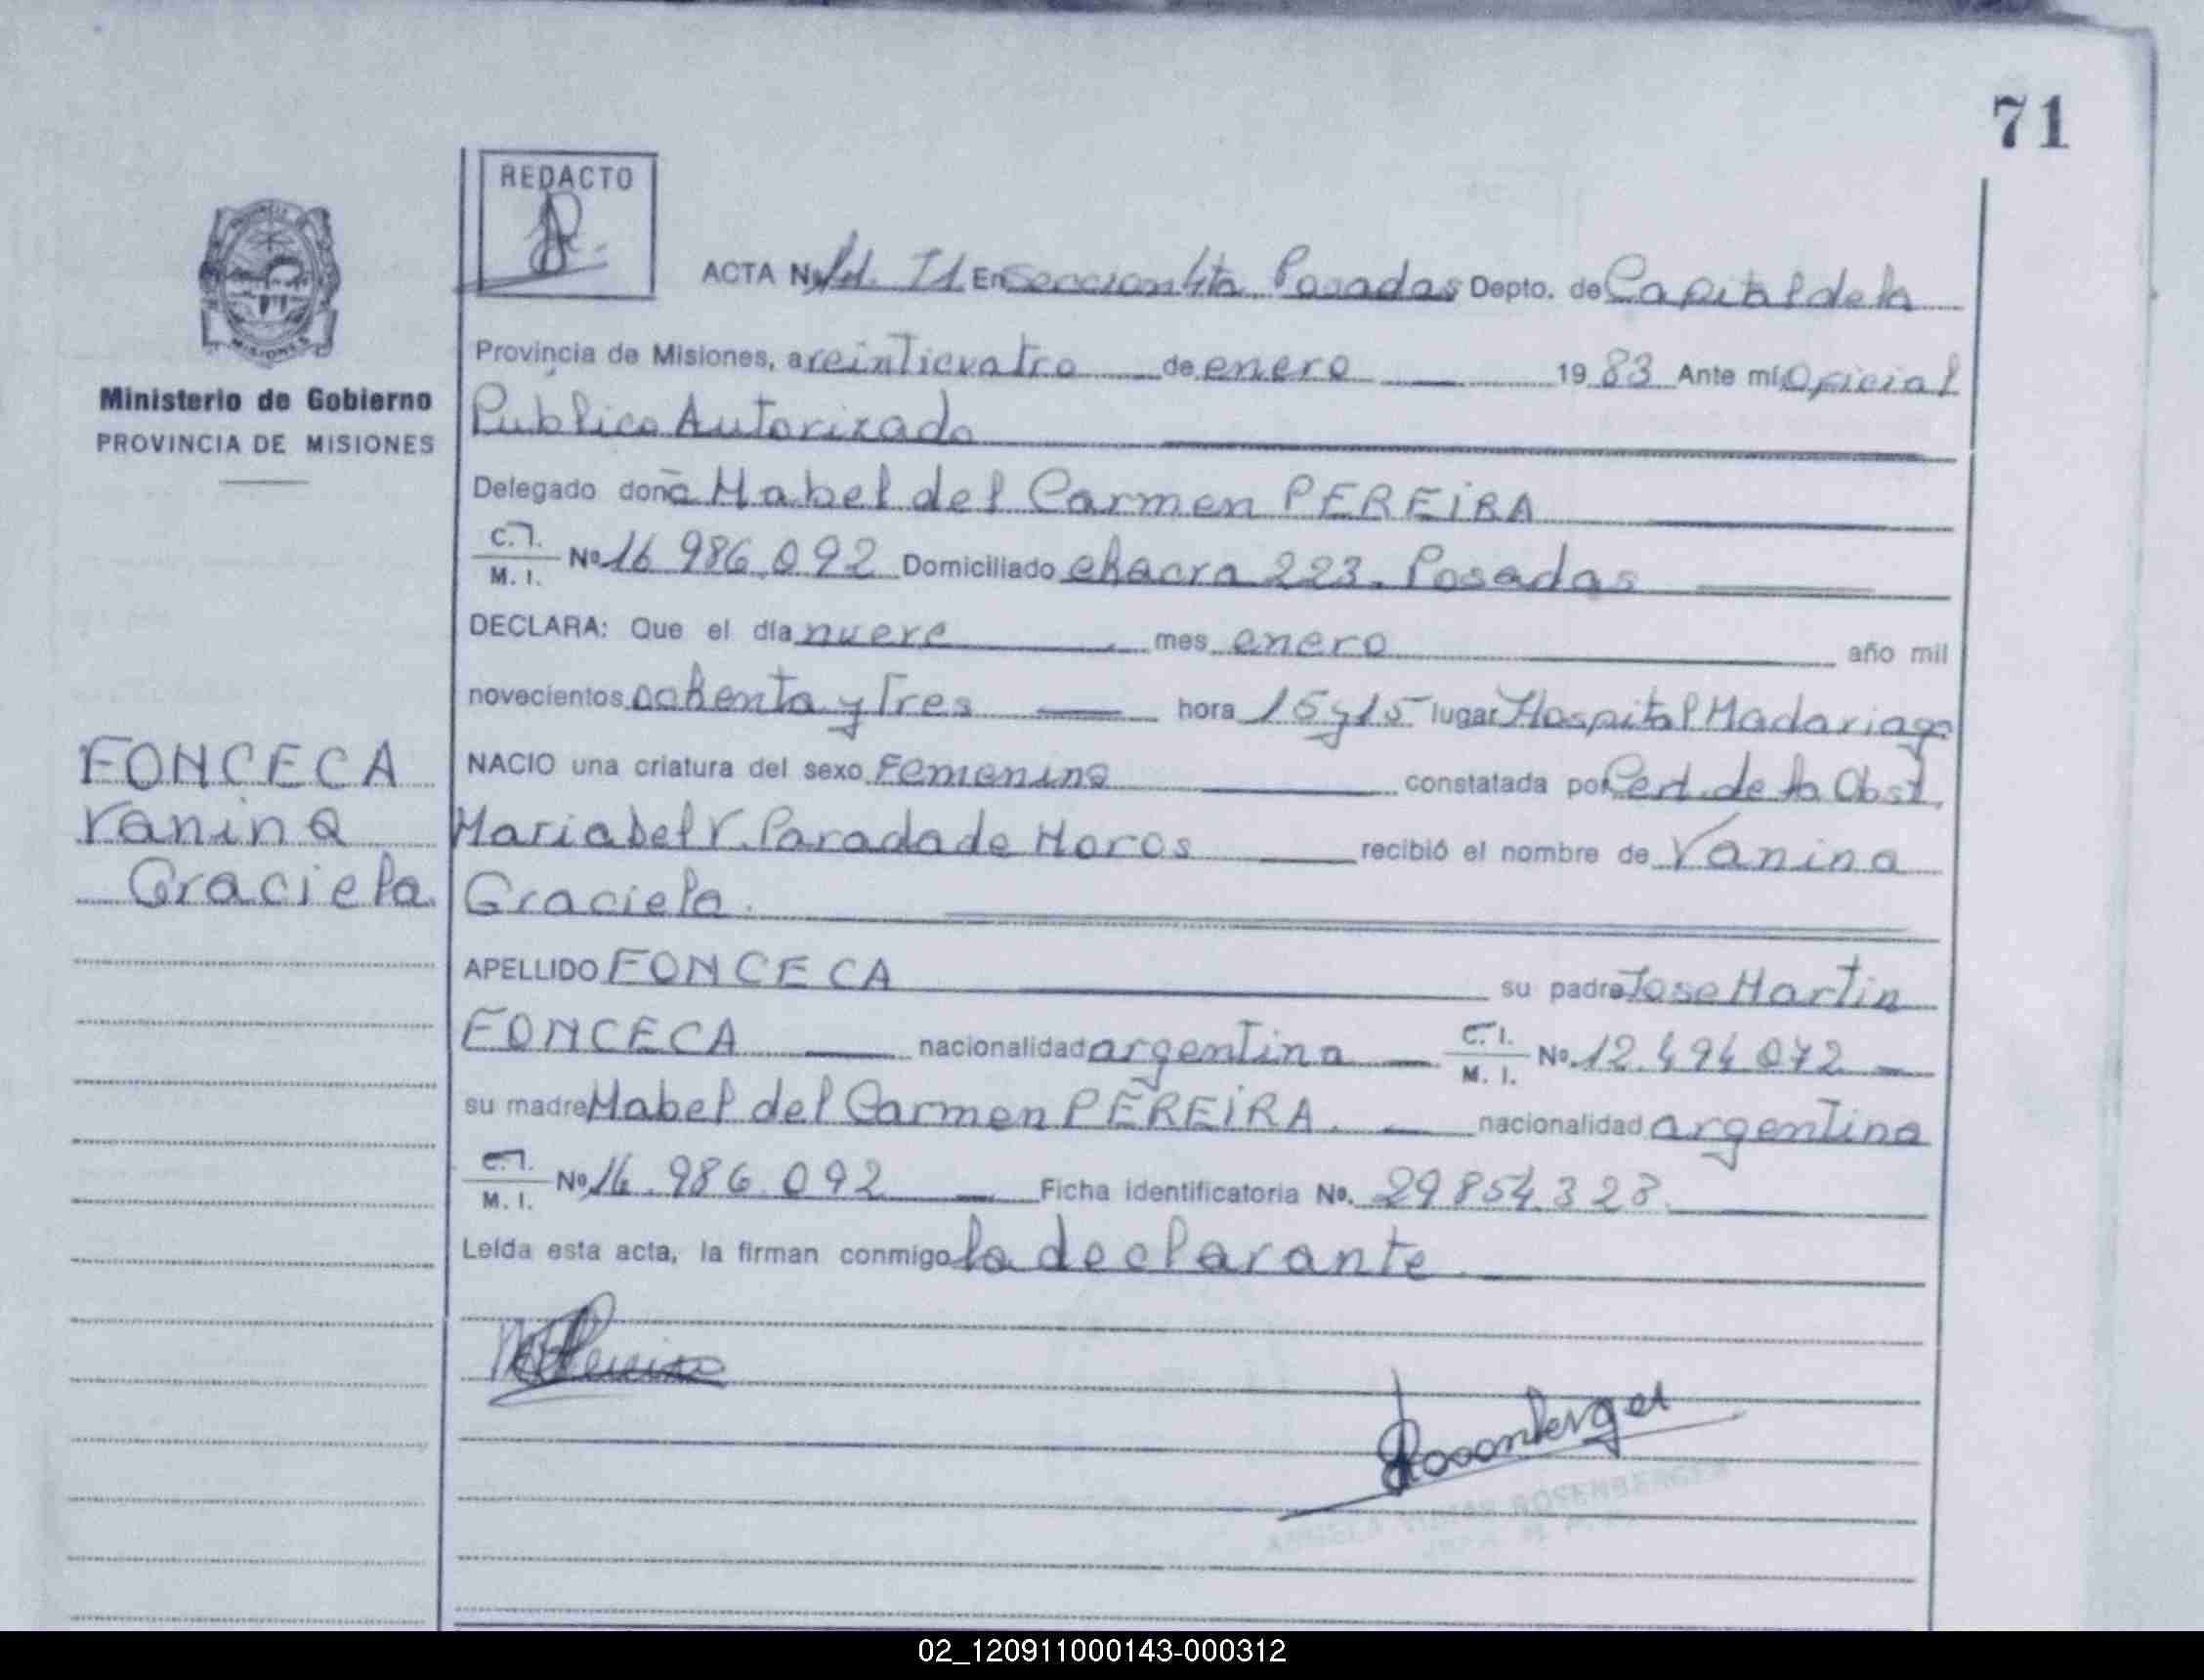 71
REDACTO
ACTA Nº 71 En Seccion 4ta Posadas Depto. de Capital de la
Provincia de Misiones, a veinticuatro de enero 1983 Ante mí Oficial
Ministerio de Gobierno
PROVINCIA DE MISIONES
MISIONES
Publico Autorizado
Delegado doña Mabel del Carmen PEREIRA
C.I.
M. I. Nº 16 986.092 Domiciliado chacra 223. Posadas
DECLARA: Que el día nueve mes enero año mil
novecientos ochenta y Tres hora 15 y 15 lugar Hospital Madariaga
NACIO una criatura del sexo Femenino constatada por Cert. de la Obst.
Mariabel V. Parada de Moros recibió el nombre de Vanina
Graciela.
FONCECA
Vanina
Graciela.
APELLIDO FONCECA su padre Jose Martin
FONCECA nacionalidad argentina C.I.
M. I. Nº 12.494.072
su madre Mabel del Carmen PEREIRA. nacionalidad argentina
C.I.
M. I. Nº 16.986.092 Ficha identificatoria Nº. 29854.323.
Leída esta acta, la firman conmigo la declarante
Rosemberger
ROSENBERGER
02_120911000143-000312